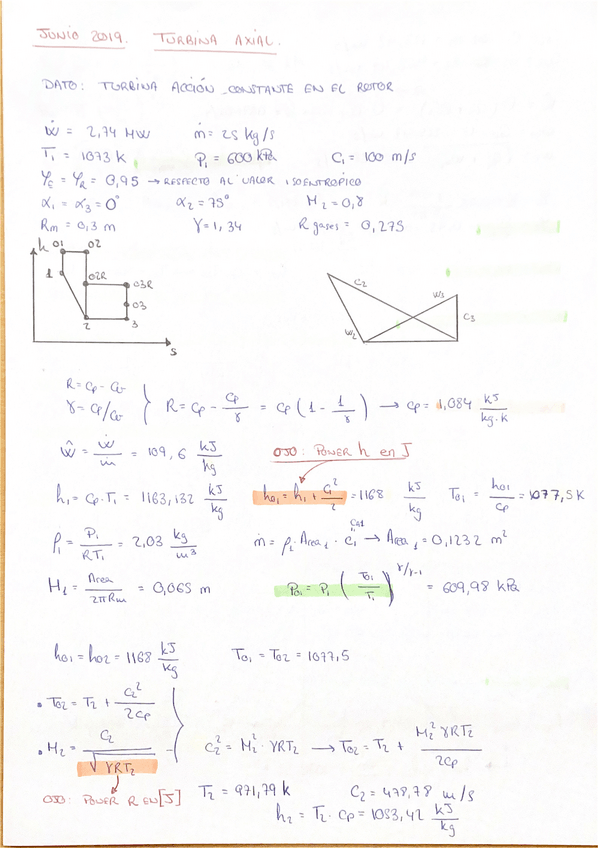 JUNIO 2019. TURBINA AXIAL.
DATO: TURBINA ACCIÓN CONSTANTE EN EL ROTOR
Ẇ = 2,74 MW ṁ = 25 kg/s
T₁ = 1073 K P₁ = 600 kPa C₁ = 100 m/s
φE = φR = 0,95 → RESPECTO AL VALOR ISOENTRÓPICO
α₁ = α₃ = 0° α₂ = 75° M₂ = 0,8
Rm = 0,3 m γ = 1,34 R gases = 0,275
h 01 02
1 02R 03R
03
2 3
s
C2 W3
W2 C3
R = Cp - Cv
γ = Cp/Cv } R = Cp - Cp/γ = Cp (1 - 1/γ) → Cp = 1,084 kJ/kg·K
Ŵ = Ẇ/ṁ = 109,6 kJ/kg OJO: PONER h en J
h₁ = Cp·T₁ = 1163,132 kJ/kg h₀₁ = h₁ + C₁²/2 = 1168 kJ/kg T₀₁ = h₀₁/Cp = 1077,5 K
ρ₁ = P₁/RT₁ = 2,03 kg/m³ ṁ = ρ₁·Area₁·C₁ → Area₁ = 0,1232 m²
H₁ = Area/2πRm = 0,065 m P₀₁ = P₁ (T₀₁/T₁)^γ/γ-1 = 609,98 kPa
h₀₁ = h₀₂ = 1168 kJ/kg T₀₁ = T₀₂ = 1077,5
• T₀₂ = T₂ + C₂²/2Cp
• M₂ = C₂/√γRT₂ } C₂² = M₂²·γRT₂ → T₀₂ = T₂ + M₂² γRT₂/2Cp
OJO: PONER R EN [J] T₂ = 971,79 K C₂ = 478,78 m/s
h₂ = T₂·Cp = 1053,42 kJ/kg